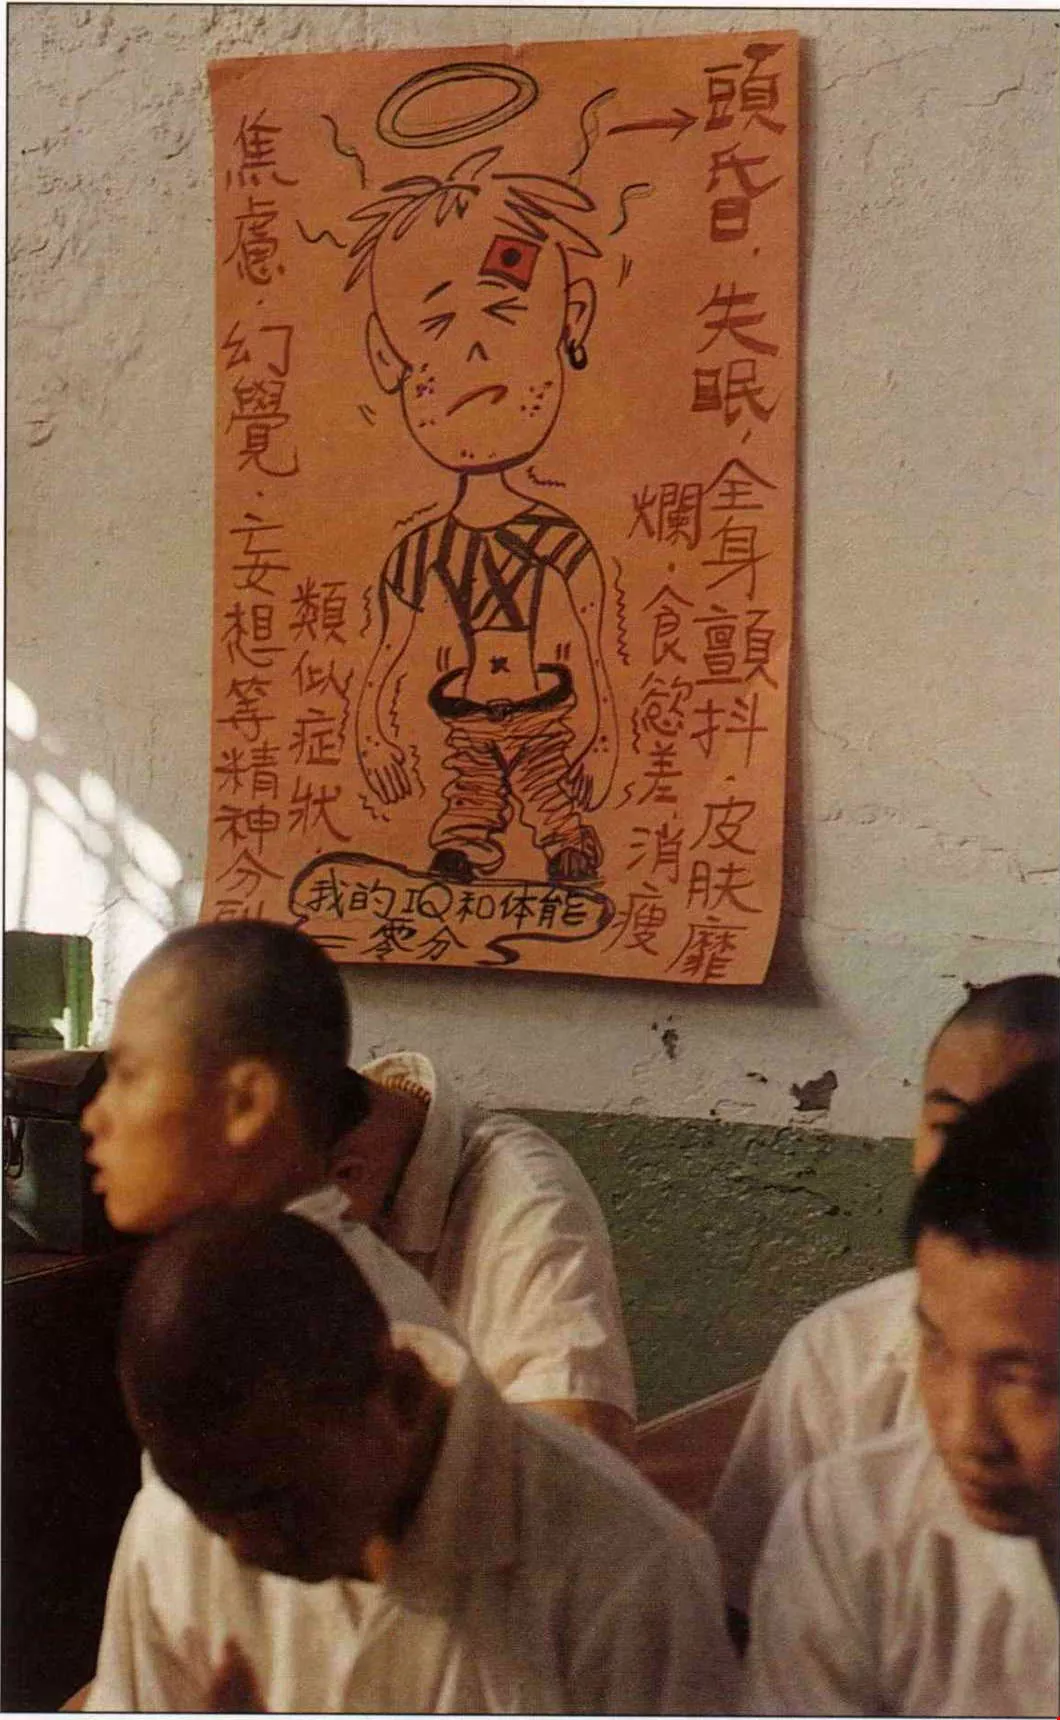 頭昏.失眠,全身顫抖.皮肤靡
爛.食慾差.消瘦
焦慮.幻覺.妄想等精神分
類似症狀.
我的IQ和体能
零分